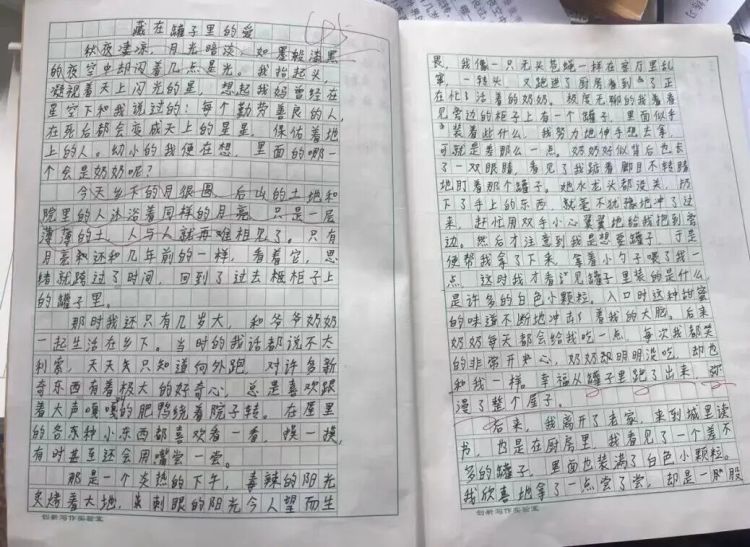 藏在罐子里的爱
秋夜凄凉，月光暗淡，如墨般漆黑
的夜空中却闪着几点星光。我抬起头，
凝视着天上闪光的星，想起我妈曾经在
星空下和我说过的：每个勤劳善良的人，
在死后都会变成天上的星星，保佑着地
上的人。幼小的我便在想，里面的哪一
个会是奶奶呢？
今天乡下的月很圆，后山的土地和
院里的人沐浴着同样的月亮，只是一层
薄薄的土，人与人就再难相见了。只有
月亮和还和几年前的一样，看着它，思
绪就跨过了时间，回到了过去橱柜子上
的罐子里。
那时我还只有几岁大，和爷爷奶奶
一起生活在乡下。当时的我话都说不大
利索，天天只知道向外跑，对许多新
奇东西有着极大的好奇心，总是喜欢跟
着大声嘎嘎的肥鸭绕着院子转。在屋里
的各种小东西都喜欢看一看，摸一摸，
有时甚至还会用嘴尝一尝。
那是一个炎热的下午，毒辣的阳光
炙烤着大地，刺眼的阳光令人望而生
畏，我像一只无头苍蝇一样在客厅里乱
窜，一转头，又跑进了厨房看到了正
在忙活着的奶奶。极度无聊的我看着
见旁边的柜子上有一个罐子，里面似乎
装着些什么，我努力地伸手想去拿，
可就是差那么一点。奶奶好似背后也长
了一双眼睛，看见了我踮着脚目不转睛
地盯着那个罐子。她水龙头都没关，扔
下了手上的东西，就毫不犹豫地冲了过
来，赶忙用双手小心翼翼地给我抱到旁
边。然后才注意到我是想要罐子，于是
便帮我拿了下来，拿着小勺子喂了我一
点，这时我才看见罐子里装的是什么，
是许多的白色小颗粒。入口时这种甜蜜
的味道不断地冲击着我的大脑。后来
奶奶每天都会给我吃一点，每次我都笑
的非常开心，奶奶却明明没吃，却也
和我一样。幸福从罐子里跑了出来，弥
漫了整个屋子。
后来，我离开了老家，来到城里读
书，也是在厨房里，我看见了一个差不
多的罐子，里面也装满了白色小颗粒。
我欣喜地拿了一点尝了尝，却是一股
创新写作实验室
创新写作实验室